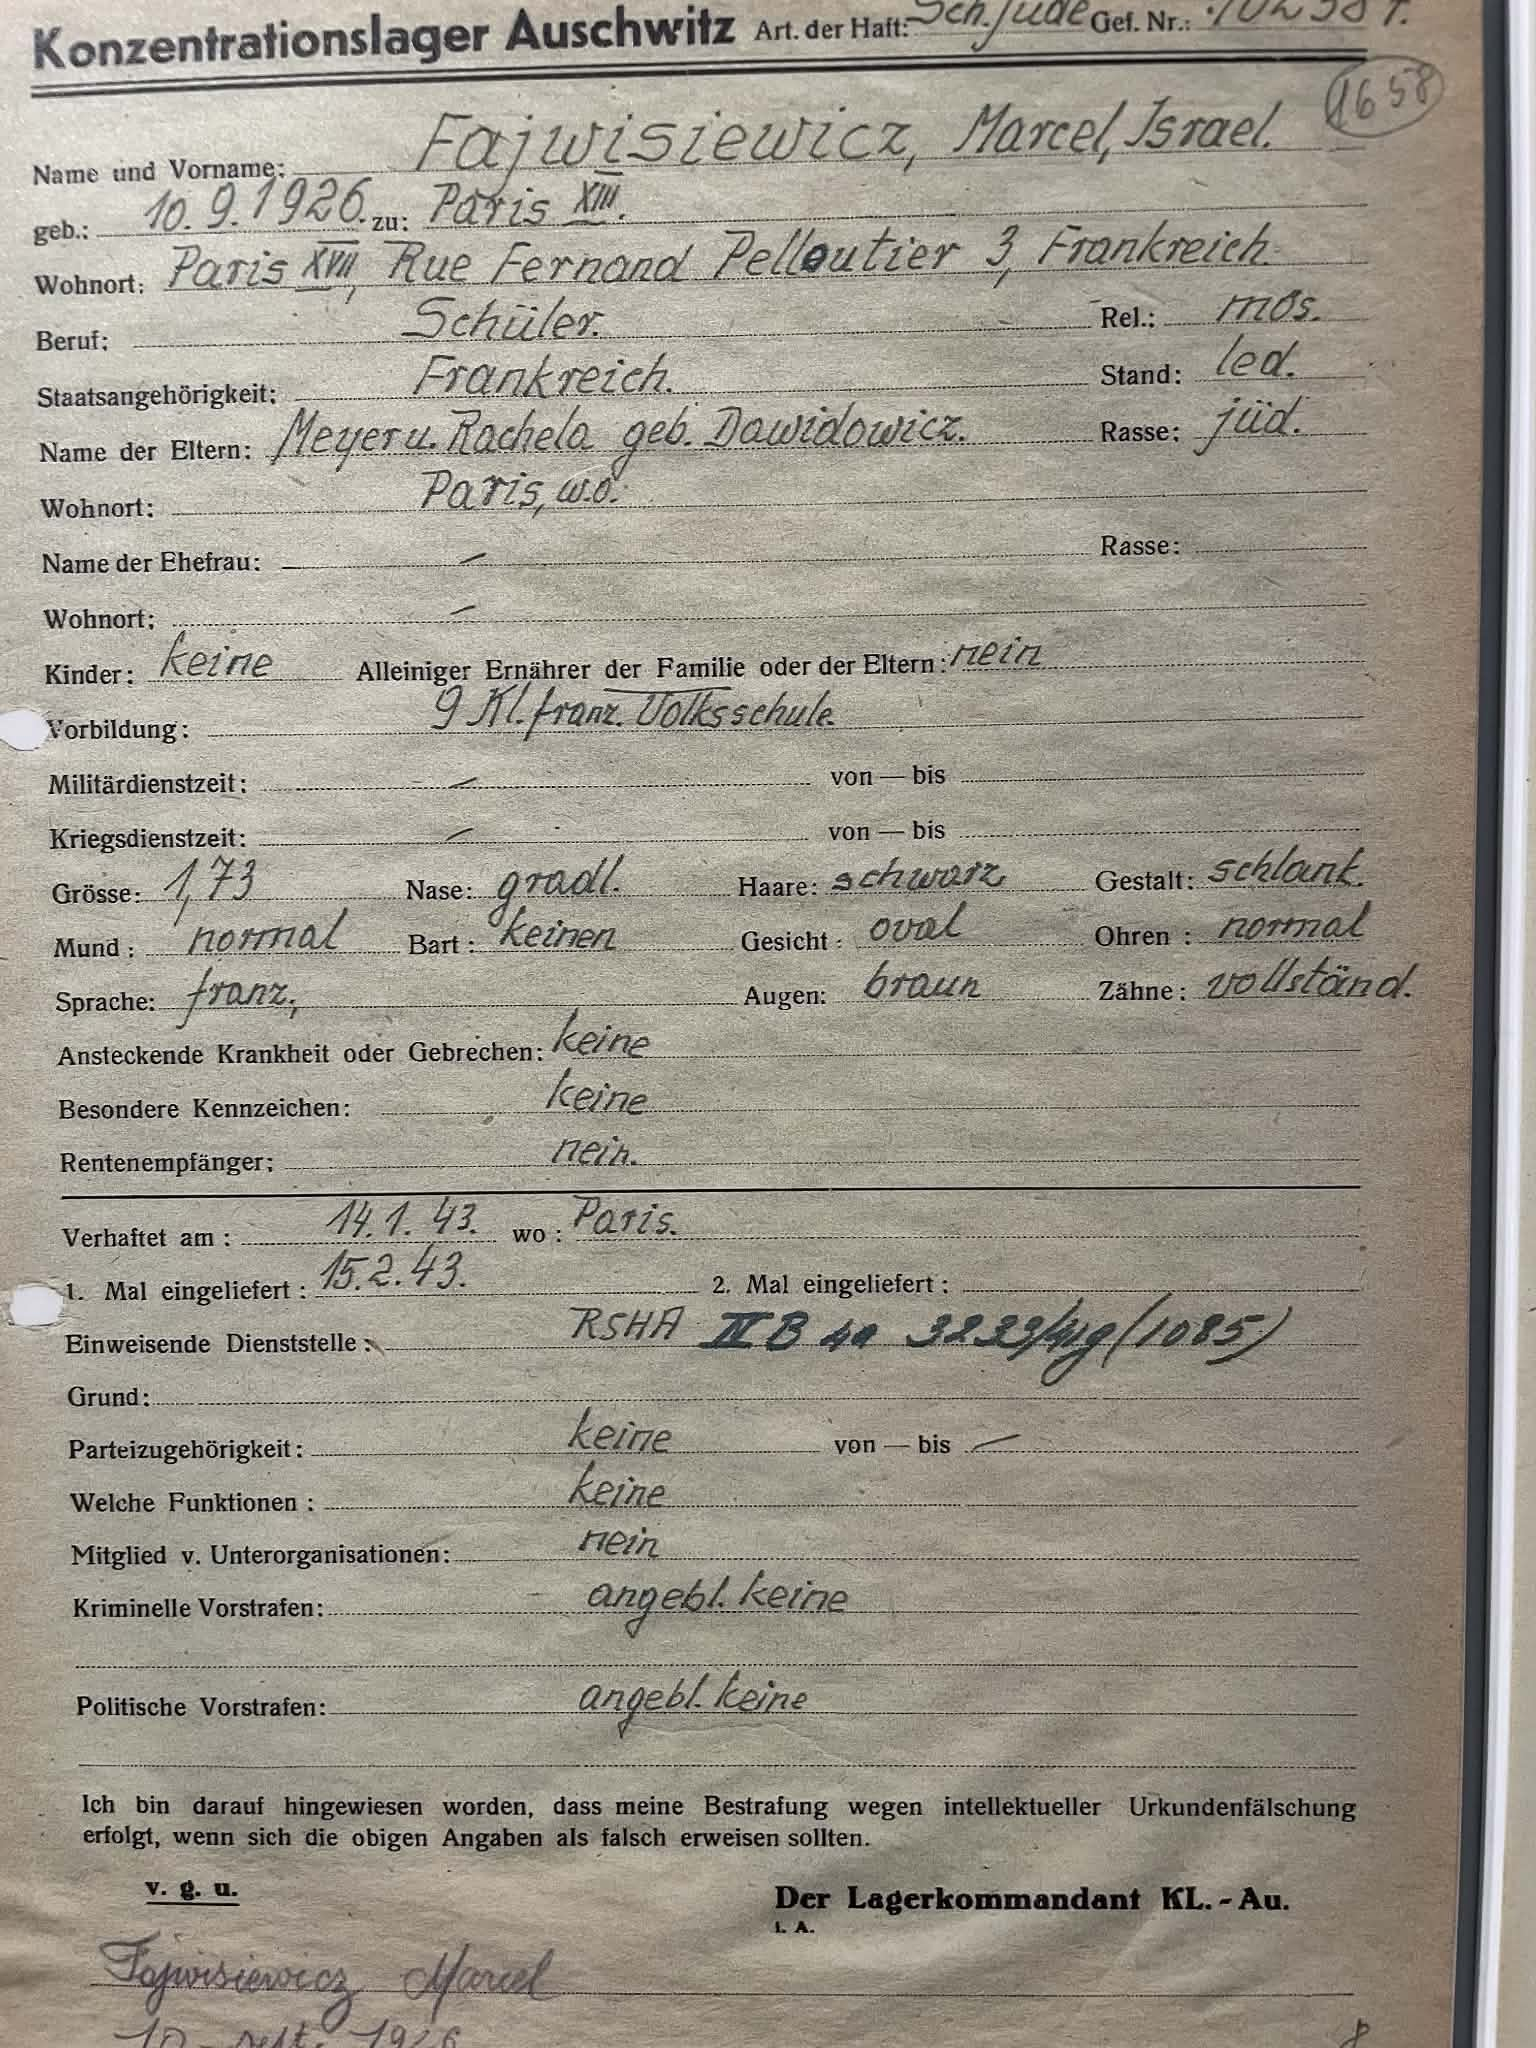 Konzentrationslager Auschwitz Art. der Haft: Sch. Jude Gef. Nr.:
1658
Name und Vorname: Fajwisiewicz, Marcel, Israel.
geb.: 10.9.1926. zu: Paris XIII.
Wohnort: Paris XVII, Rue Fernand Pelloutier 3, Frankreich.
Beruf: Schüler. Rel.: mos.
Staatsangehörigkeit: Frankreich. Stand: led.
Name der Eltern: Meyer u. Rachela geb. Dawidowicz. Rasse: jüd.
Wohnort: Paris, w.o.
Name der Ehefrau: — Rasse:
Wohnort: —
Kinder: keine Alleiniger Ernährer der Familie oder der Eltern: nein
Vorbildung: 9 Kl. franz. Volksschule.
Militärdienstzeit: — von — bis
Kriegsdienstzeit: — von — bis
Grösse: 1,73 Nase: gradl. Haare: schwarz Gestalt: schlank.
Mund: normal Bart: keinen Gesicht: oval Ohren: normal
Sprache: franz., Augen: braun Zähne: vollständ.
Ansteckende Krankheit oder Gebrechen: keine
Besondere Kennzeichen: keine
Rentenempfänger: nein.
Verhaftet am: 14.1.43. wo: Paris.
1. Mal eingeliefert: 15.2.43. 2. Mal eingeliefert:
Einweisende Dienststelle: RSHA IV B 4a (1085)
Grund:
Parteizugehörigkeit: keine von — bis —
Welche Funktionen: keine
Mitglied v. Unterorganisationen: nein
Kriminelle Vorstrafen: angebl. keine
Politische Vorstrafen: angebl. keine
Ich bin darauf hingewiesen worden, dass meine Bestrafung wegen intellektueller Urkundenfälschung
erfolgt, wenn sich die obigen Angaben als falsch erweisen sollten.
v. g. u. Der Lagerkommandant KL.-Au.
i. A.
Fajwisiewicz Marcel
10 - sept. 1926